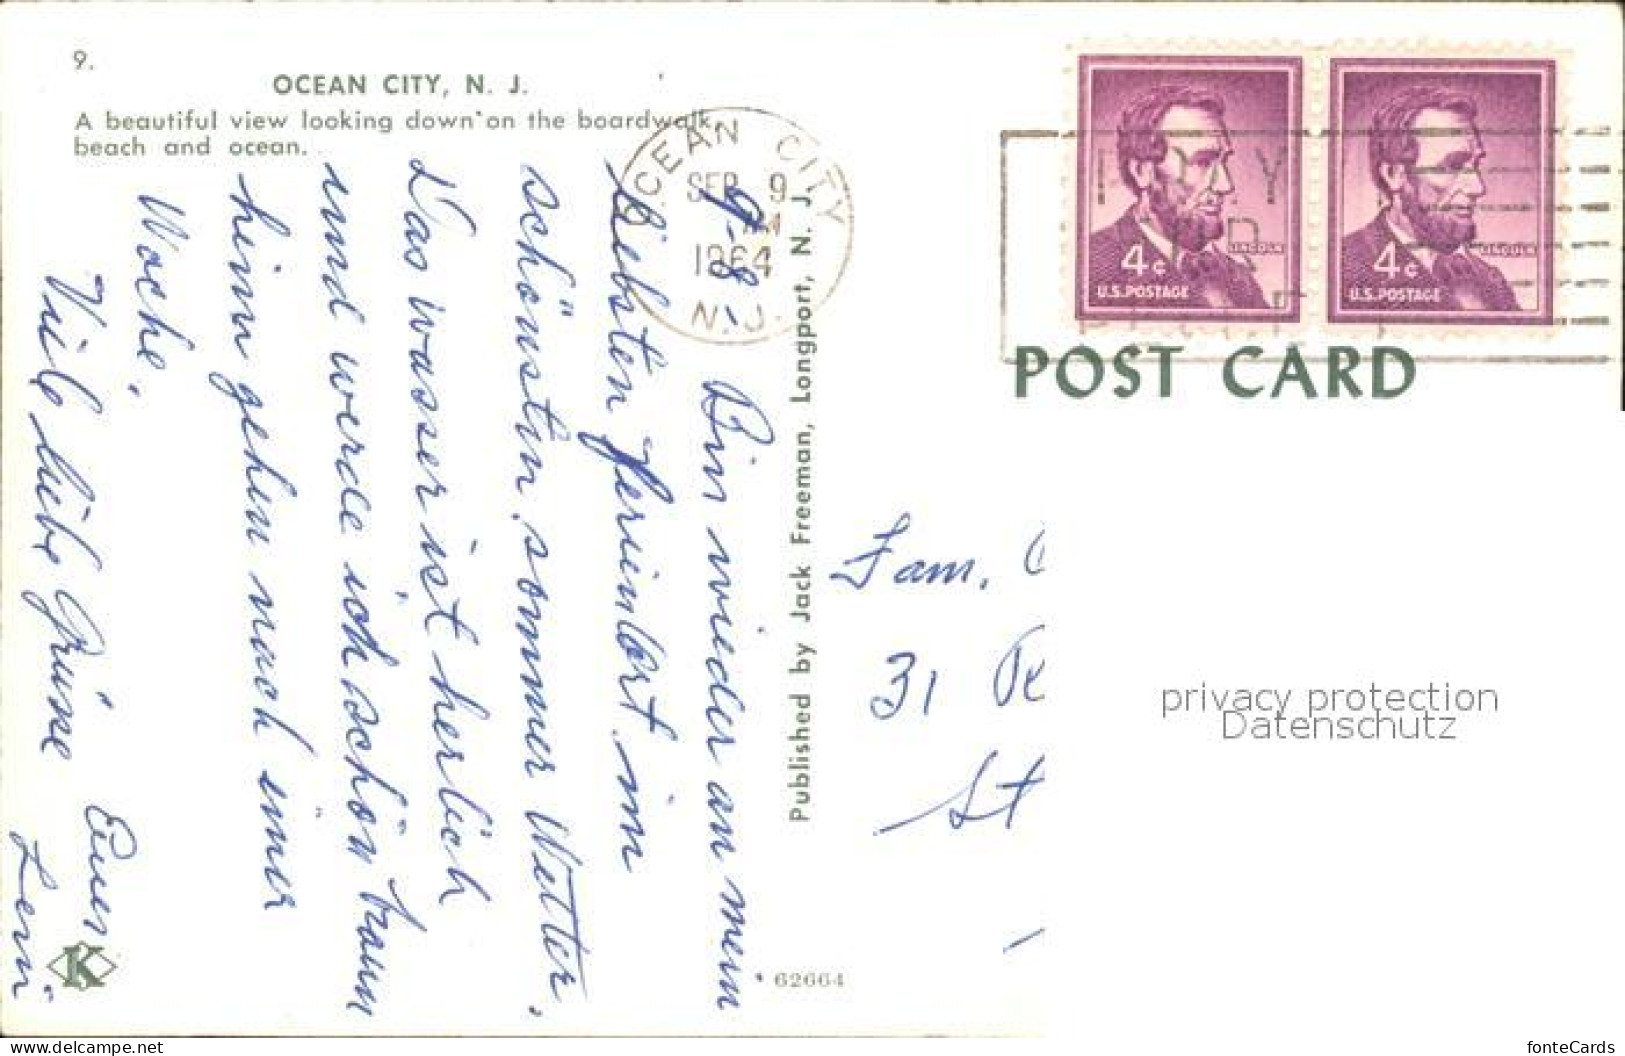 9.
OCEAN CITY, N. J.
A beautiful view looking down on the boardwalk,
beach and ocean.
OCEAN CITY
SEP 9
AM
1964
N.J.
4¢
LINCOLN
U.S. POSTAGE
4¢
LINCOLN
U.S. POSTAGE
POST CARD
9-8-
Bin wieder an mein
liebsten ferienort im
schönsten sommer Wetter.
Das wasser ist herlich
und werde ich schön braun
heim gehen nach einer
Woche.
Viele liebe Grüsse
Euer
Published by Jack Freeman, Longport, N. J.
Fam.
31
St
K
62664
privacy protection
Datenschutz
https://www.delcampe.net/en_US/collectibles
fonteCards